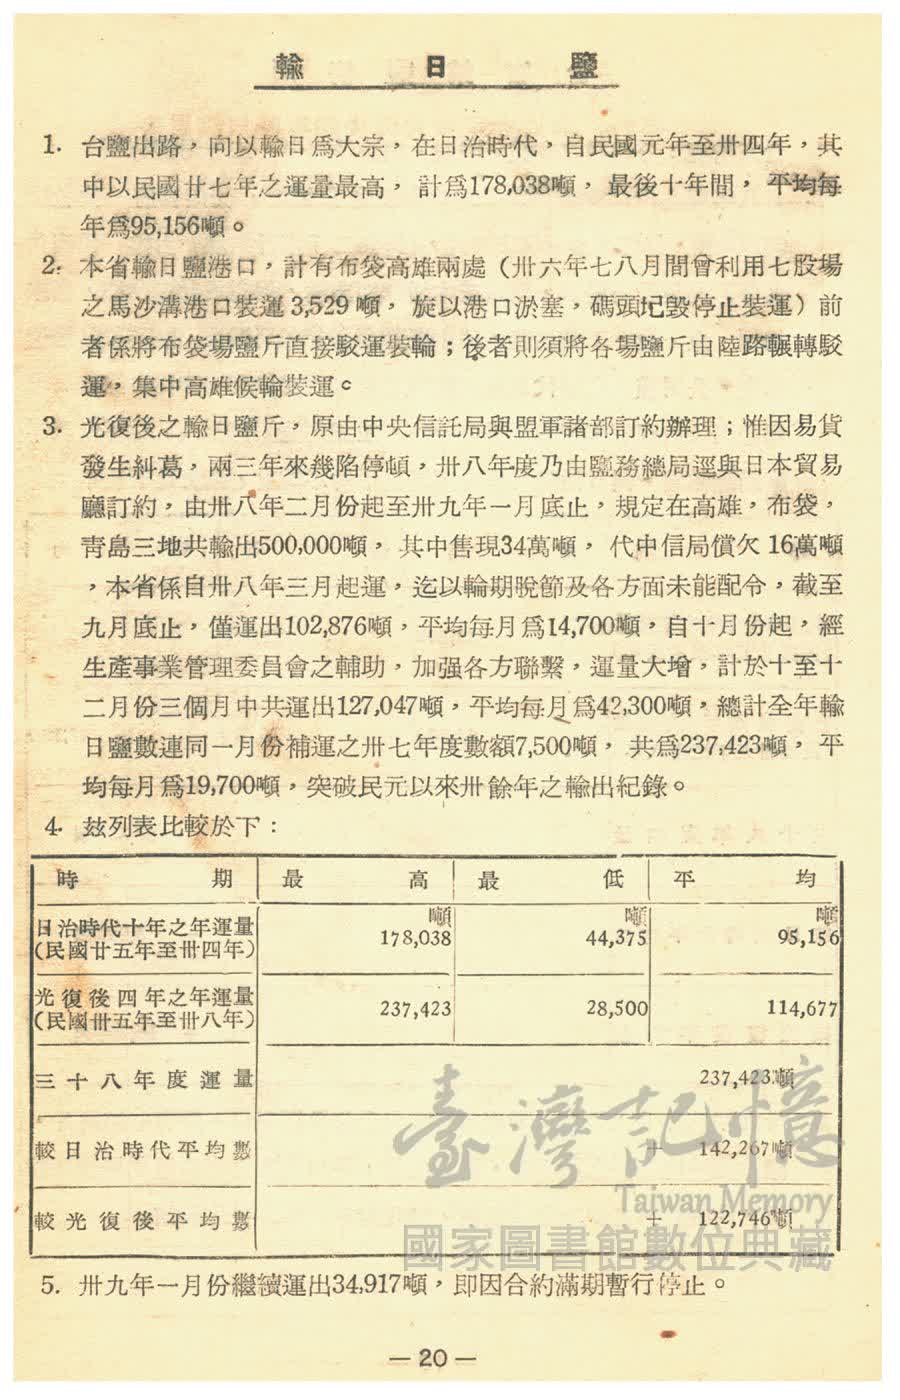 輸日鹽
1. 台鹽出路，向以輸日爲大宗，在日治時代，自民國元年至卅四年，其
中以民國廿七年之運量最高，計爲178,038噸，最後十年間，平均每
年爲95,156噸。
2. 本省輸日鹽港口，計有布袋高雄兩處（卅六年七八月間曾利用七股場
之馬沙溝港口裝運3,529噸，旋以港口淤塞，碼頭圮毀停止裝運）前
者係將布袋場鹽斤直接駁運裝輪；後者則須將各場鹽斤由陸路輾轉駁
運，集中高雄候輪裝運。
3. 光復後之輸日鹽斤，原由中央信託局與盟軍諸部訂約辦理；惟因易貨
發生糾葛，兩三年來幾陷停頓，卅八年度乃由鹽務總局逕與日本貿易
廳訂約，由卅八年二月份起至卅九年一月底止，規定在高雄，布袋，
靑島三地共輸出500,000噸，其中售現34萬噸，代中信局償欠16萬噸
，本省係自卅八年三月起運，迄以輪期脫節及各方面未能配合，截至
九月底止，僅運出102,876噸，平均每月爲14,700噸，自十月份起，經
生產事業管理委員會之輔助，加强各方聯繫，運量大增，計於十至十
二月份三個月中共運出127,047噸，平均每月爲42,300噸，總計全年輸
日鹽數連同一月份補運之卅七年度數額7,500噸，共爲237,423噸，平
均每月爲19,700噸，突破民元以來卅餘年之輸出紀錄。
4. 茲列表比較於下：
時期 最高 最低 平均
噸 噸 噸
日治時代十年之年運量
(民國廿五年至卅四年) 178,038 44,375 95,156
光復後四年之年運量
(民國卅五年至卅八年) 237,423 28,500 114,677
三十八年度運量 237,423噸
較日治時代平均數 + 142,267噸
較光復後平均數 + 122,746噸
臺灣記憶
Taiwan Memory
國家圖書館數位典藏
5. 卅九年一月份繼續運出34,917噸，即因合約滿期暫行停止。
— 20 —